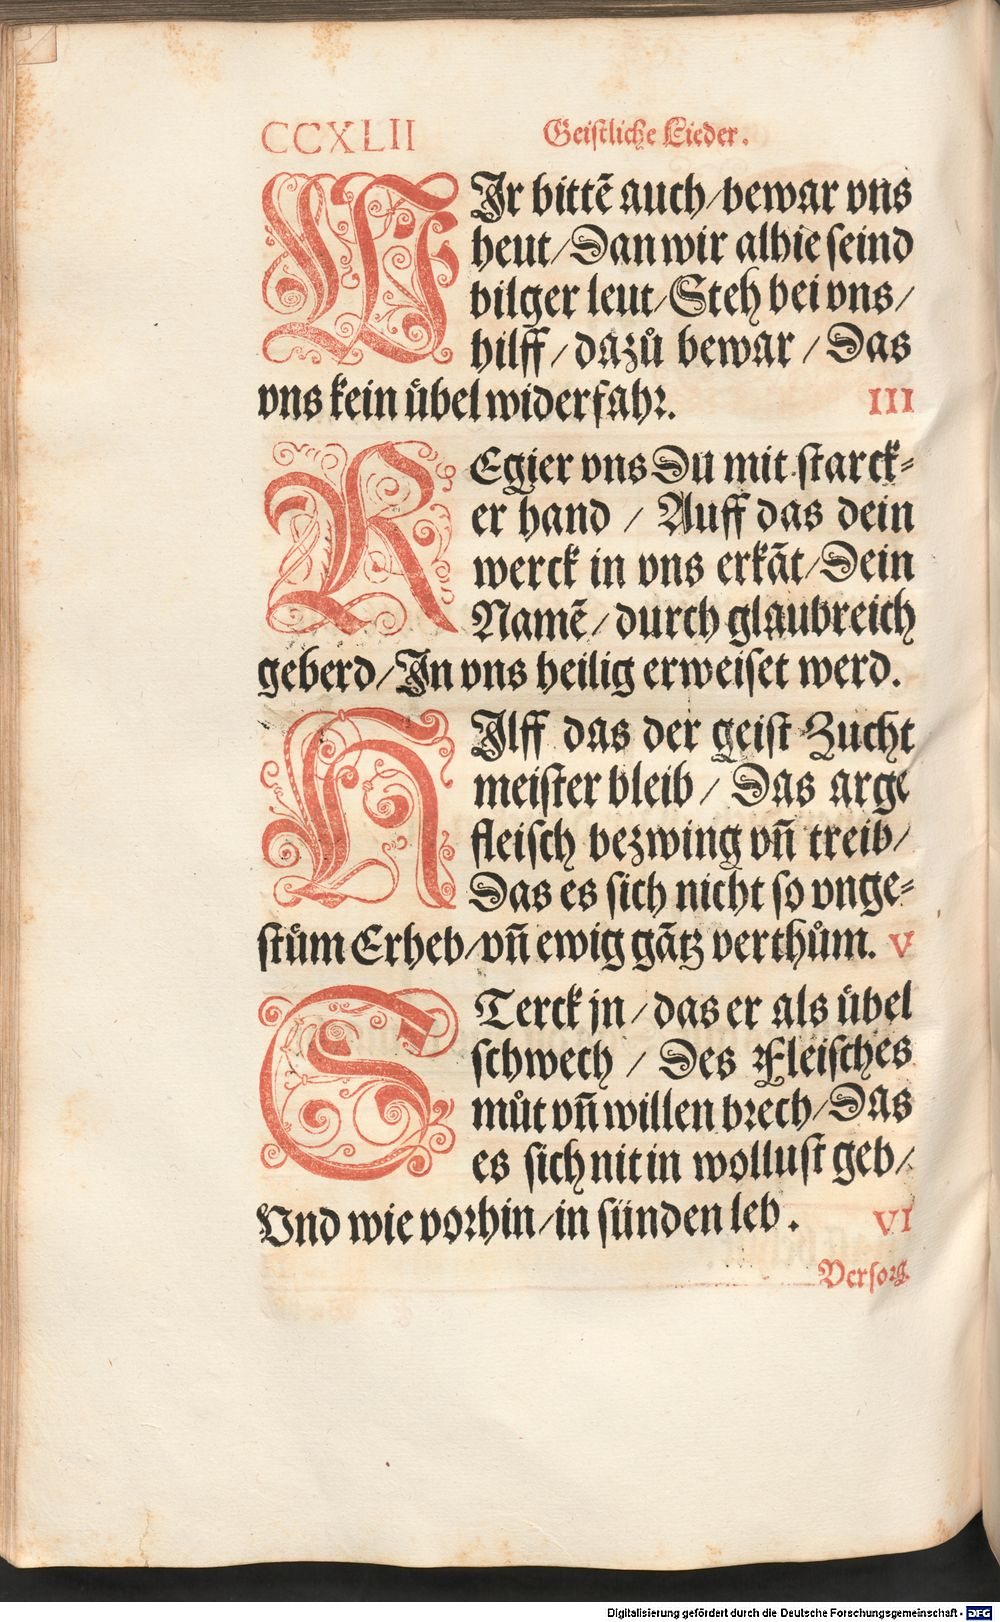 CCXLII Geistliche Lieder.
WIr bittẽ auch/bewar vns
heut/Dan wir alhie seind
bilger leut/Steh bei vns/
hilff/dazů bewar/Das
vns kein übel widerfahr. III
REgier vns Du mit starck⸗
er hand/Auff das dein
werck in vns erkãt/Dein
Namẽ/durch glaubreich
geberd/In vns heilig erweiset werd.
HIlff das der geist Zucht
meister bleib/Das arge
fleisch bezwing vñ treib/
Das es sich nicht so vnge⸗
stüm Erheb/vñ ewig gãtz verthům. V
STerck jn/das er als übel
schwech/Des Fleisches
můt vñ willen brech/Das
es sich nit in wollust geb/
Vnd wie vorhin/in sünden leb. VI
Versorg.
Digitalisierung gefördert durch die Deutsche Forschungsgemeinschaft - DFG